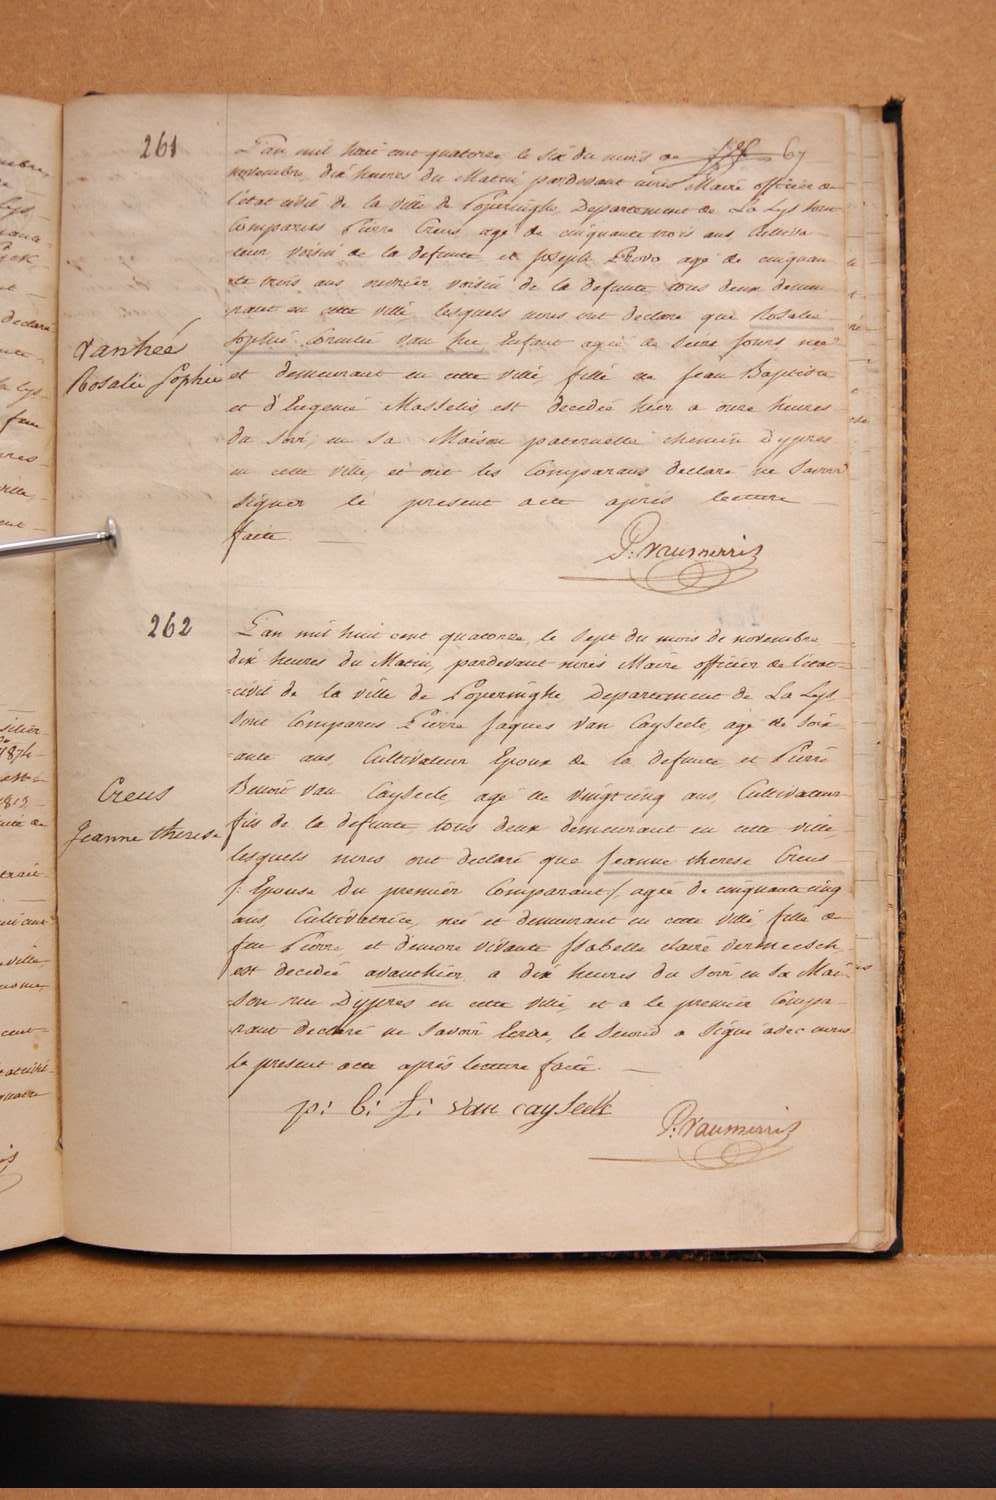 261
L'an mil huit cent quatorze, le six du mois de 67
novembre, dix heures du Matin pardevant nous Maire officier de
l'état civil de la ville de Poperinghe, Departement de La Lys sont
Comparus Pierre Creus agé de cinquante trois ans Cultiva-
teur voisin de la defunte et Joseph Provo agé de cinquan
te trois ans ouvrier voisin de la defunte tous deux demeu
rant en cette ville, lesquels nous ont declaré que Rosalie
Sophie Cornelie van hee Enfant agée de seize jours née
Vanheé
Rosalie Sophie
et demeurant en cette ville, fille de Jean Baptiste
et d'Eugenie Masselis est decedée hier a onze heures
du soir, en sa Maison paternelle chemin d'ypres
en cette ville, et ont les Comparans declaré ne savoir
signer le present acte après lecture
faite.
P. Vanmerris
262
L'an mil huit cent quatorze, le sept du mois de novembre
dix heures du Matin, pardevant nous Maire officier de l'état-
civil de la ville de Poperinghe, Departement de La Lys,
sont Comparus Pierre Jaques Van Cayseele, agé de soix-
ante ans, Cultivateur Epoux de la defunte et Pierre
Benoit van Cayseele, agé de vingt cinq ans, Cultivateur
Creus
Jeanne therese
fils de la defunte, tous deux demeurant en cette ville,
lesquels nous ont declaré que Jeanne therese Creus
/: Epouse du premier Comparant :/, agée de cinquante cinq
ans, Cultivatrice, née et demeurant en cette ville fille de
feu Pierre, et d'encore vivante Isabelle claire vermeesch,
est decedée avanthier, a dix heures du soir en sa Mai-
son rue D'ypres en cette ville, et a le premier Compa-
rant declaré ne savoir Ecrire, le second a signé avec nous
le present acte après lecture faite.
p: b: J: van cayseele
P. Vanmerris